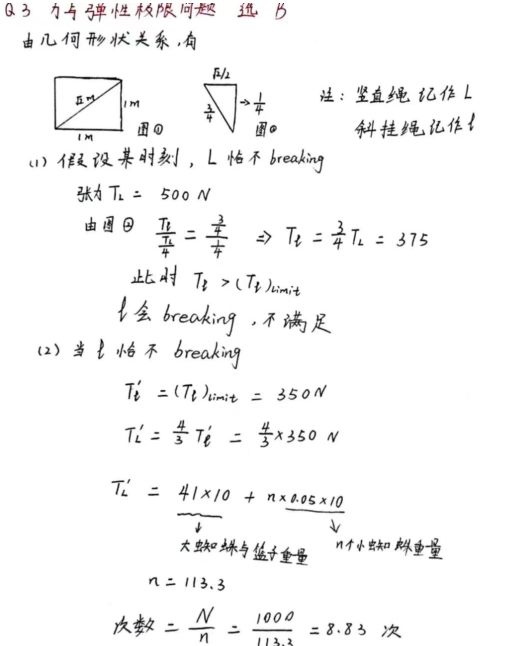 Q3 力与弹性极限问题 选 B
由几何形状关系,有
√2m
1m
1m
图①
√2/2
3/4
→1/4
图②
注: 竖直绳记作 L
斜挂绳记作 l
(1) 假设某时刻, L 恰不 breaking
张力 T_L = 500 N
由图② T_l / (T_L/4) = (3/4) / (1/4) ⇒ T_l = 3/4 T_L = 375
此时 T_l > (T_l)limit
l 会 breaking, 不满足
(2) 当 l 恰不 breaking
T_l' = (T_l)limit = 350N
T_L' = 4/3 T_l' = 4/3 × 350 N
T_L' = 41×10 + n×0.05×10
大蜘蛛与篮子重量
n个小蜘蛛重量
n = 113.3
次数 = N/n = 1000/113.3 = 8.83 次